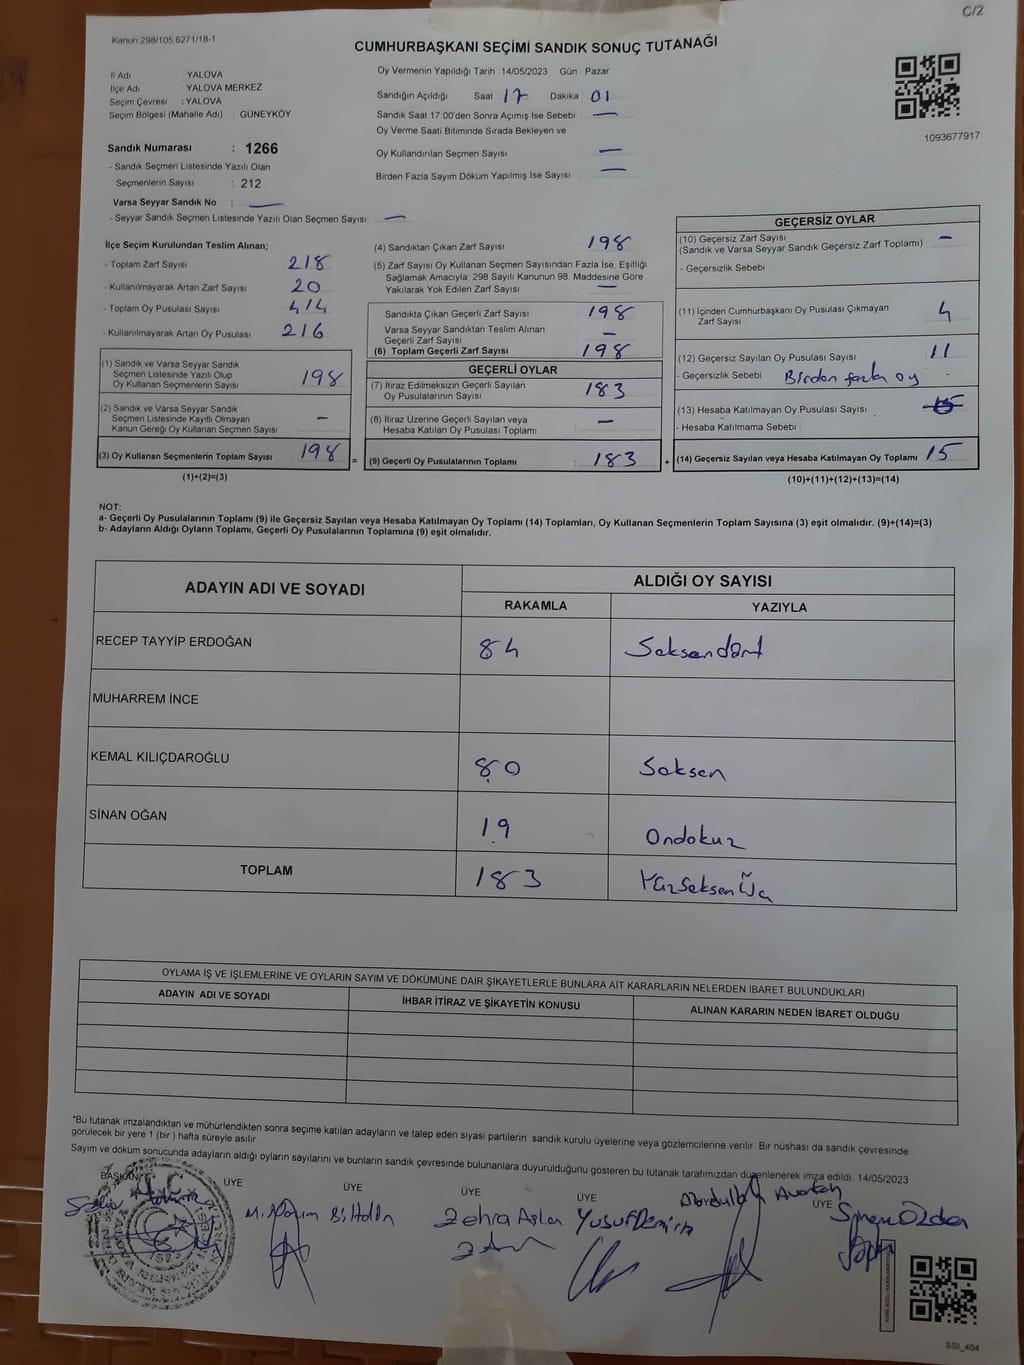 C/2
Kanun 298/105,6271/18-1
CUMHURBAŞKANI SEÇİMİ SANDIK SONUÇ TUTANAĞI
İl Adı YALOVA
İlçe Adı : YALOVA MERKEZ
Seçim Çevresi : YALOVA
Seçim Bölgesi (Mahalle Adı) : GÜNEYKÖY
Oy Vermenin Yapıldığı Tarih : 14/05/2023 Gün : Pazar
Sandığın Açıldığı Saat 17 Dakika 01
Sandık Saat 17.00'den Sonra Açımış İse Sebebi : —
Oy Verme Saati Bitiminde Sırada Bekleyen ve
Oy Kullandırılan Seçmen Sayısı —
Birden Fazla Sayım Döküm Yapılmış İse Sayısı : —
1093677917
Sandık Numarası : 1266
- Sandık Seçmen Listesinde Yazılı Olan
Seçmenlerin Sayısı : 212
Varsa Seyyar Sandık No : —
- Seyyar Sandık Seçmen Listesinde Yazılı Olan Seçmen Sayısı : —
İlçe Seçim Kurulundan Teslim Alınan;
- Toplam Zarf Sayısı 218
- Kullanılmayarak Artan Zarf Sayısı : 20
- Toplam Oy Pusulası Sayısı : 414
- Kullanılmayarak Artan Oy Pusulası : 216
(1) Sandık ve Varsa Seyyar Sandık
Seçmen Listesinde Yazılı Olup
Oy Kullanan Seçmenlerin Sayısı : 198
(2) Sandık ve Varsa Seyyar Sandık
Seçmen Listesinde Kayıtlı Olmayan
Kanun Gereği Oy Kullanan Seçmen Sayısı : —
(3) Oy Kullanan Seçmenlerin Toplam Sayısı : 198
(1)+(2)=(3)
=
(4) Sandıktan Çıkan Zarf Sayısı : 198
(5) Zarf Sayısı Oy Kullanan Seçmen Sayısından Fazla İse, Eşitliği
Sağlamak Amacıyla, 298 Sayılı Kanunun 98. Maddesine Göre
Yakılarak Yok Edilen Zarf Sayısı : —
Sandıkta Çıkan Geçerli Zarf Sayısı : 198
Varsa Seyyar Sandıktan Teslim Alınan
Geçerli Zarf Sayısı : —
(6) Toplam Geçerli Zarf Sayısı : 198
GEÇERLİ OYLAR
(7) İtiraz Edilmeksizin Geçerli Sayılan
Oy Pusulalarının Sayısı : 183
(8) İtiraz Üzerine Geçerli Sayılan veya
Hesaba Katılan Oy Pusulası Toplamı : —
(9) Geçerli Oy Pusulalarının Toplamı : 183
+
GEÇERSİZ OYLAR
(10) Geçersiz Zarf Sayısı : —
(Sandık ve Varsa Seyyar Sandık Geçersiz Zarf Toplamı)
- Geçersizlik Sebebi :
(11) İçinden Cumhurbaşkanı Oy Pusulası Çıkmayan
Zarf Sayısı : 4
(12) Geçersiz Sayılan Oy Pusulası Sayısı : 11
- Geçersizlik Sebebi : Birden fazla oy
(13) Hesaba Katılmayan Oy Pusulası Sayısı :
- Hesaba Katılmama Sebebi :
(14) Geçersiz Sayılan veya Hesaba Katılmayan Oy Toplamı : 15
(10)+(11)+(12)+(13)=(14)
NOT:
a- Geçerli Oy Pusulalarının Toplamı (9) ile Geçersiz Sayılan veya Hesaba Katılmayan Oy Toplamı (14) Toplamları, Oy Kullanan Seçmenlerin Toplam Sayısına (3) eşit olmalıdır. (9)+(14)=(3)
b- Adayların Aldığı Oyların Toplamı, Geçerli Oy Pusulalarının Toplamına (9) eşit olmalıdır.
ADAYIN ADI VE SOYADI ALDIĞI OY SAYISI
RAKAMLA YAZIYLA
RECEP TAYYİP ERDOĞAN 84 Seksendört
MUHARREM İNCE
KEMAL KILIÇDAROĞLU 80 Seksen
SİNAN OĞAN 19 Ondokuz
TOPLAM 183 Yüzseksen üç
OYLAMA İŞ VE İŞLEMLERİNE VE OYLARIN SAYIM VE DÖKÜMÜNE DAİR ŞİKAYETLERLE BUNLARA AİT KARARLARIN NELERDEN İBARET BULUNDUKLARI
ADAYIN ADI VE SOYADI İHBAR İTİRAZ VE ŞİKAYETİN KONUSU ALINAN KARARIN NEDEN İBARET OLDUĞU
*Bu tutanak imzalandıktan ve mühürlendikten sonra seçime katılan adayların ve talep eden siyasi partilerin sandık kurulu üyelerine veya gözlemcilerine verilir. Bir nüshası da sandık çevresinde
görülecek bir yere 1 (bir) hafta süreyle asılır.
Sayım ve döküm sonucunda adayların aldığı oyların sayılarını ve bunların sandık çevresinde bulunanlara duyurulduğunu gösteren bu tutanak tarafımızdan düzenlenerek imza edildi. 14/05/2023
BAŞKAN ÜYE ÜYE ÜYE ÜYE ÜYE
Zehra Aslan Yusuf Demirtn
SSI_404